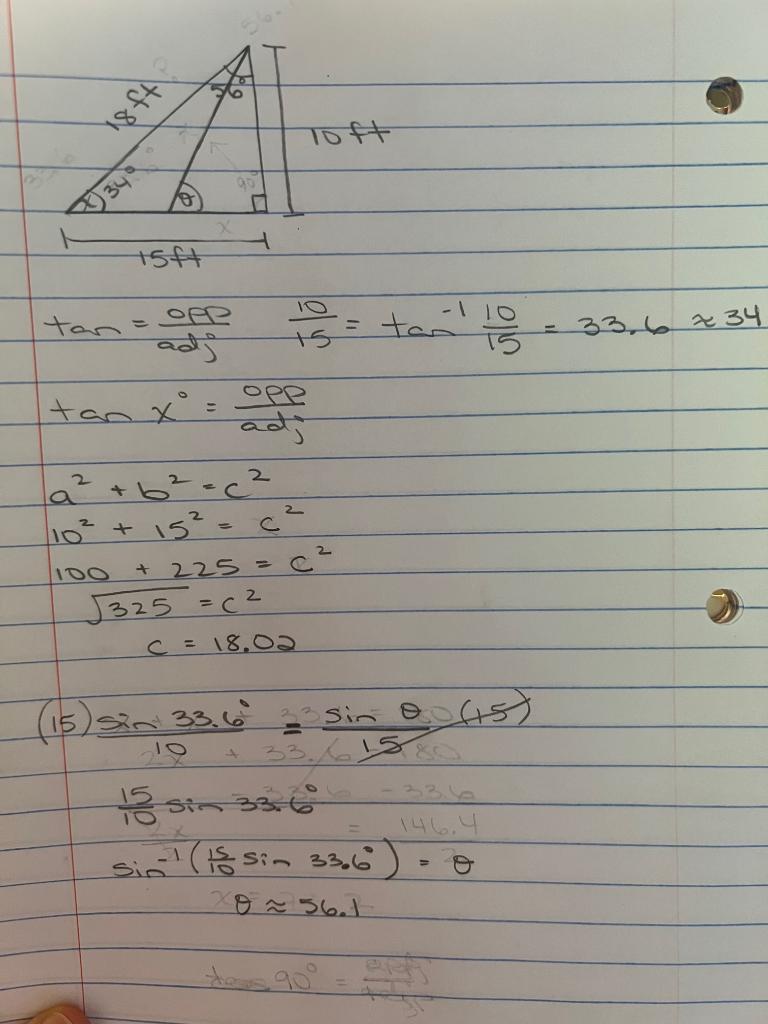 18 ft
56°
10 ft
x 34°
θ
15 ft
tan = opp/adj 10/15 = tan⁻¹ 10/15 = 33.6 ≈ 34
tan x° = opp/adj
a² + b² = c²
10² + 15² = c²
100 + 225 = c²
√325 = c²
c = 18.02
(15) sin 33.6°/10 = sin θ/15 (15)
15/10 sin 33.6°
sin⁻¹ (15/10 sin 33.6°) = θ
θ ≈ 56.1